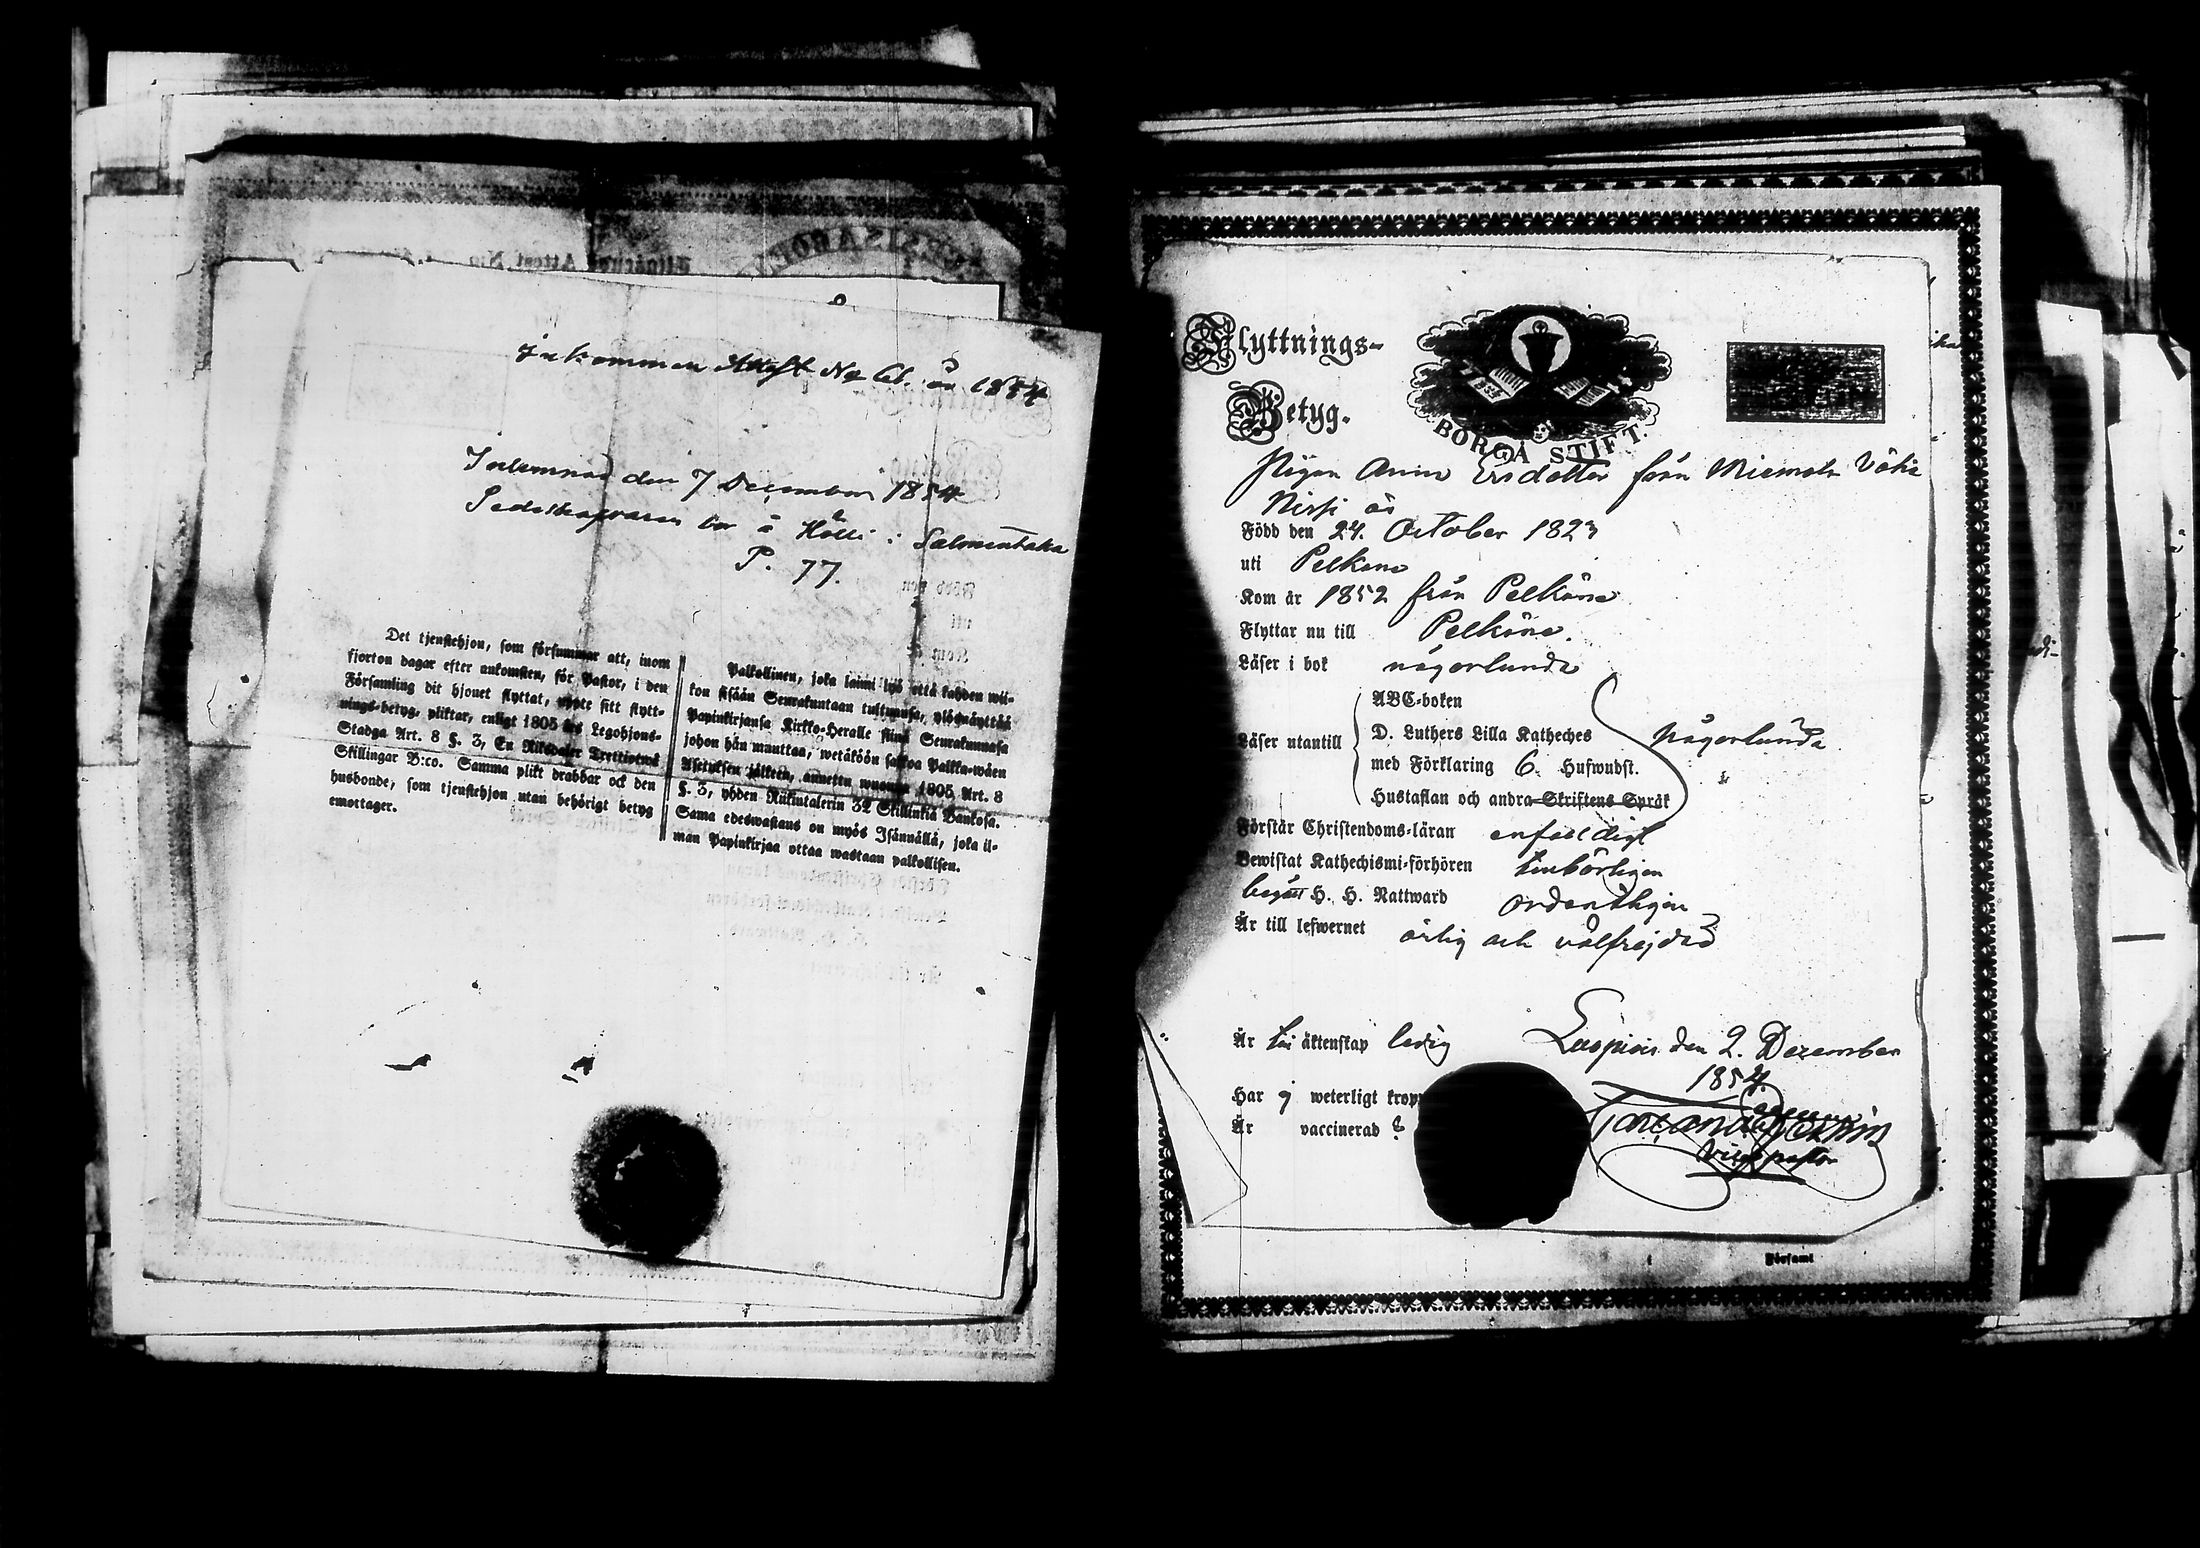 Inkommen Attest No 61. år 1854
Inlemnad den 7 December 1854
bor å Hölli i Salmentaka
P. 77.
Det tjenstehjon, som försummar att, inom
fjorton dagar efter ankomsten, för Pastor, i den
Församling dit hjonet flyttat, uppte sitt flytt-
nings-betyg, pliktar, enligt 1805 års Legohjons-
Stadga Art. 8 §. 3, En Riksdaler Trettiotwå
Skillingar B:co. Samma plikt drabbar ock den
husbonde, som tjenstehjon utan behörigt betyg
emottager.
Palkollinen, joka laimi lyö että kahden wii-
kon sisään Seurakuntaan tultuansa, ylösnäyttää
Papinkirjansa Kirkko-Herralle siinä Seurakunnasa
johon hän muuttaa, wetäköön sakkoa Palkka-wäen
Asetuksen jälkeen, annettu wuonna 1805 Art. 8
§. 3, yhden Riikintalerin 32 Skillinkiä Bankosa.
Sama edeswastaus on myös Isännällä, joka il-
man Papinkirjaa ottaa wastaan palkollisen.
Flyttnings-
Betyg.
BORGÅ STIFT.
Pigan Anna Ersdotter från
Född den 24. October 1823
uti Pelkäne
Kom år 1852 från Pelkäne
Flyttar nu till Pelkäne.
Läser i bok någorlunda
Läser utantill
ABC-boken
D. Luthers Lilla Katheches
med Förklaring 6. Hufwudst.
Hustaflan och andra Skriftens Språk
någorlunda
Förstår Christendoms-läran enfaldigt
Bewistat Kathechismi-förhören
begått H. H. Nattward ordentligen
Är till lefwernet ärlig och välfrejdad
Är till äktenskap ledig
den 2. Dezember
1854.
Har ej weterligt kropp
Är vaccinerad
Vice pastor
Församl